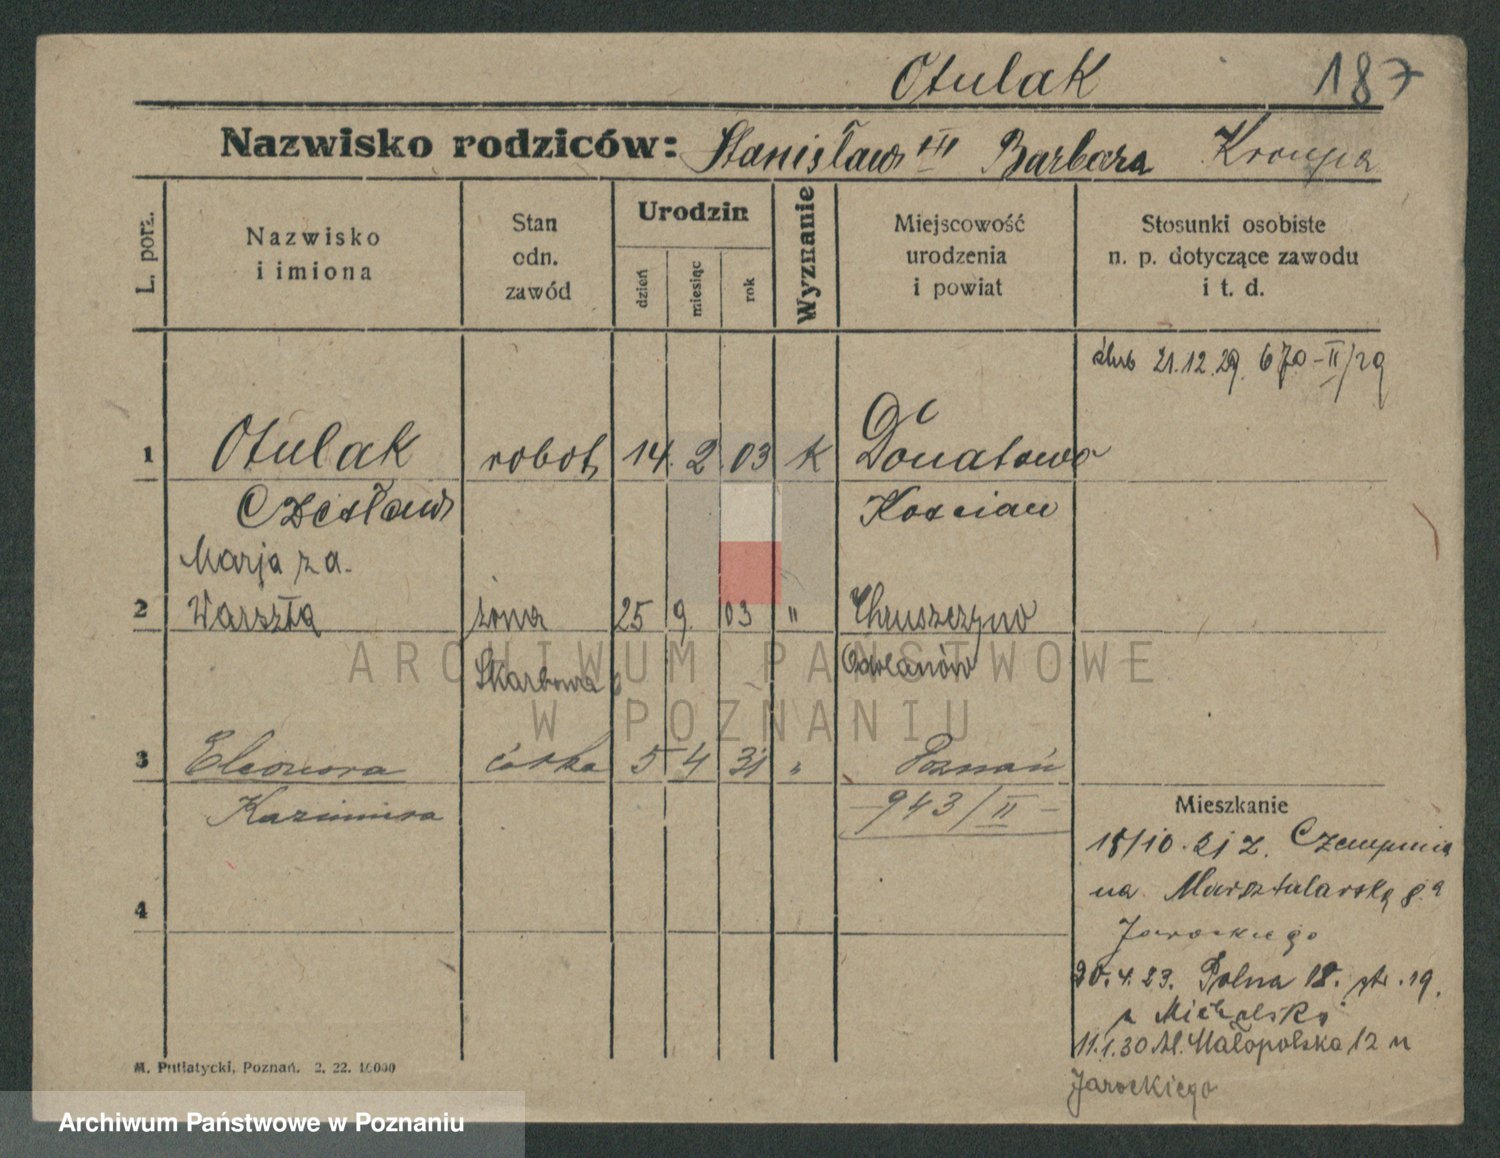 Otulak 187
Nazwisko rodziców: Stanisław III Barbara Kroupa
L. porz.
Nazwisko
i imiona
Stan
odn.
zawód
Urodzin
dzień
miesiąc
rok
Wyznanie
Miejscowość
urodzenia
i powiat
Stosunki osobiste
n. p. dotyczące zawodu
i t. d.
ślub 21.12.29. 670-II/29
1 Otulak robot. 14. 2. 03 K Donatowo
Czesław Kościan
Marja z d.
2 Warszta żona 25 9. 03 " Chruszczyno
Skarbowa Odolanów
3 Eleonora córka 5 4 31 " Poznań
Kazimiera - 943/II -
Mieszkanie
18/10.21 z. Czempinia
na Marsztalarską 8.a
Jarockiego
4
20.4.23. Polna 18. ptr. 19.
Michalski
11.1.30 Małopolska 12 u
Jarockiego
M. Putiatycki, Poznań. 2. 22. 10000
ARCHIWUM PAŃSTWOWE
W POZNANIU
Archiwum Państwowe w Poznaniu